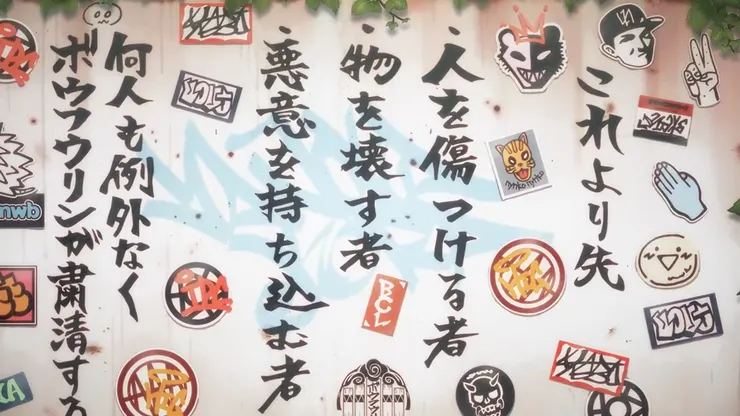 これより先
・人を傷つける者
・物を壊す者
・悪意を持ち込む者
何人も例外なく
ボウフウリンが粛清する
BCL
nwb